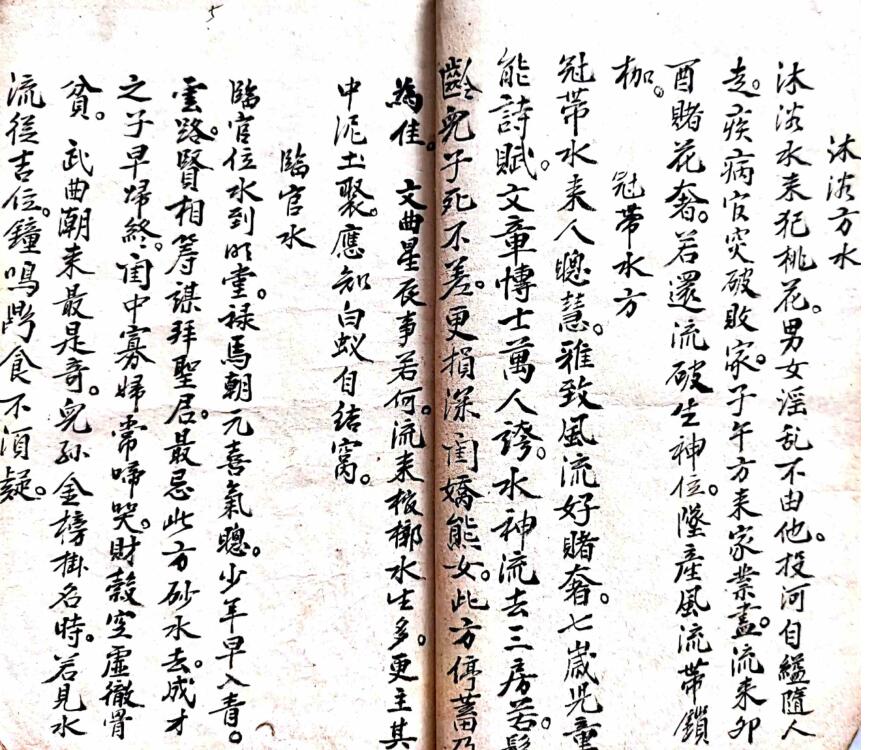 沐浴方水
沐浴水来犯桃花。男女淫乱不由他。投河自縊隨人
走。疾病官灾破敗家。子午方来家業盡。流来卯
酉賭花奢。若還流破生神位。墮產風流帶鎖
枷。　冠帶水方
冠帶水来人聰慧。雅致風流好賭奢。七歲児童
能詩賦。文章博士萬人誇。水神流去三房若髫
齡兒子死不差。更損深閨嬌態女。此方停蓄乃
為佳。　文曲星辰事若何。流来棺槨水生多。更主其
中泥土聚。應知白蚁自结窩。
臨官水
臨官位水到明堂。禄馬朝元喜氣聰。少年早入青。
雲路。賢相籌謀拜聖君。最忌此方砂水去。成才
之子早归終。閨中寡婦常啼哭。財穀空虛徹骨
貧。　武曲潮来最是奇。兒孫金榜掛名時。若見水
流從吉位。鐘鳴鼎食不須疑。